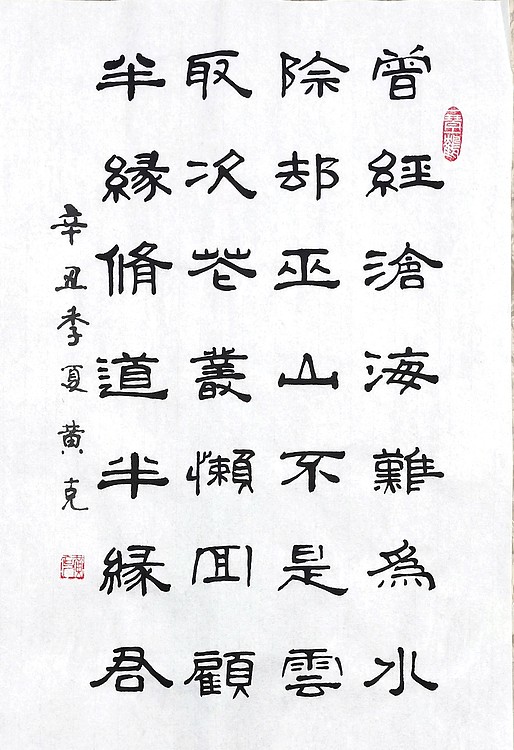 曾經滄海難為水
除却巫山不是雲
取次花叢懶回顧
半緣脩道半緣君
辛丑季夏黄克